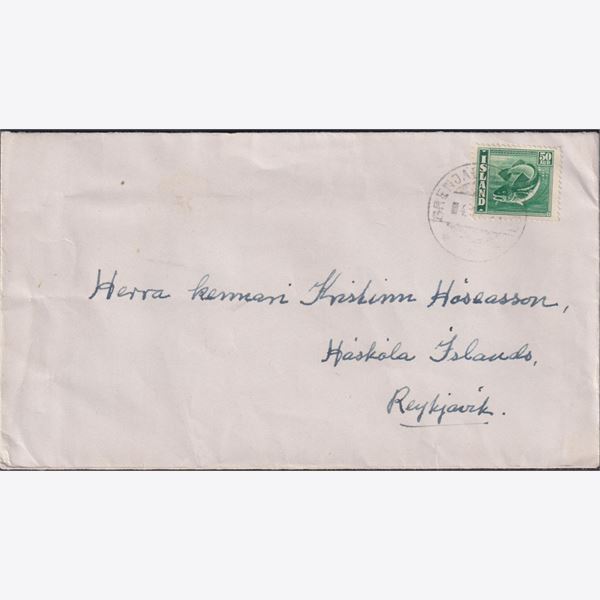 50
AUR
ÍSLAND
GRENJA
Herra kennari Kristinn Hóseasson,
Háskóla Íslands,
Reykjavík.